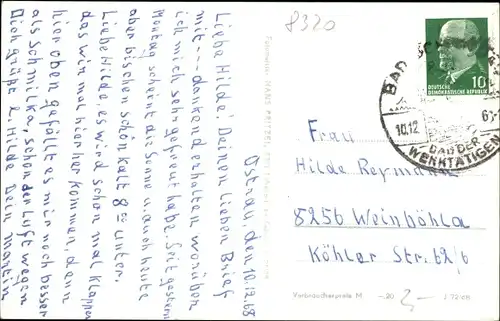 8320
Ostrau, den 10.12.68
Liebe Hilde! Deinen lieben Brief
mit --- dankend erhalten worüber
ich mich sehr gefreut habe. Seit gestern
Montag scheint die Sonne u. auch heute
aber bischen schön kalt 8° unter.
Liebe Hilde, es wird schon mal klappen
das wir mal hier her kommen, denn
hier oben gefällt es mir noch besser
als Schmilka, schon der Luft wegen
Dich grüßt l. Hilde Dein Martin
DEUTSCHE
DEMOKRATISCHE REPUBLIK
10
BAD
10.12
BAD DER
WERKTÄTIGEN
Frau
Hilde Reymann
8256 Weinböhla
Köhler Str. 62/b
Verbraucherpreis M -,20